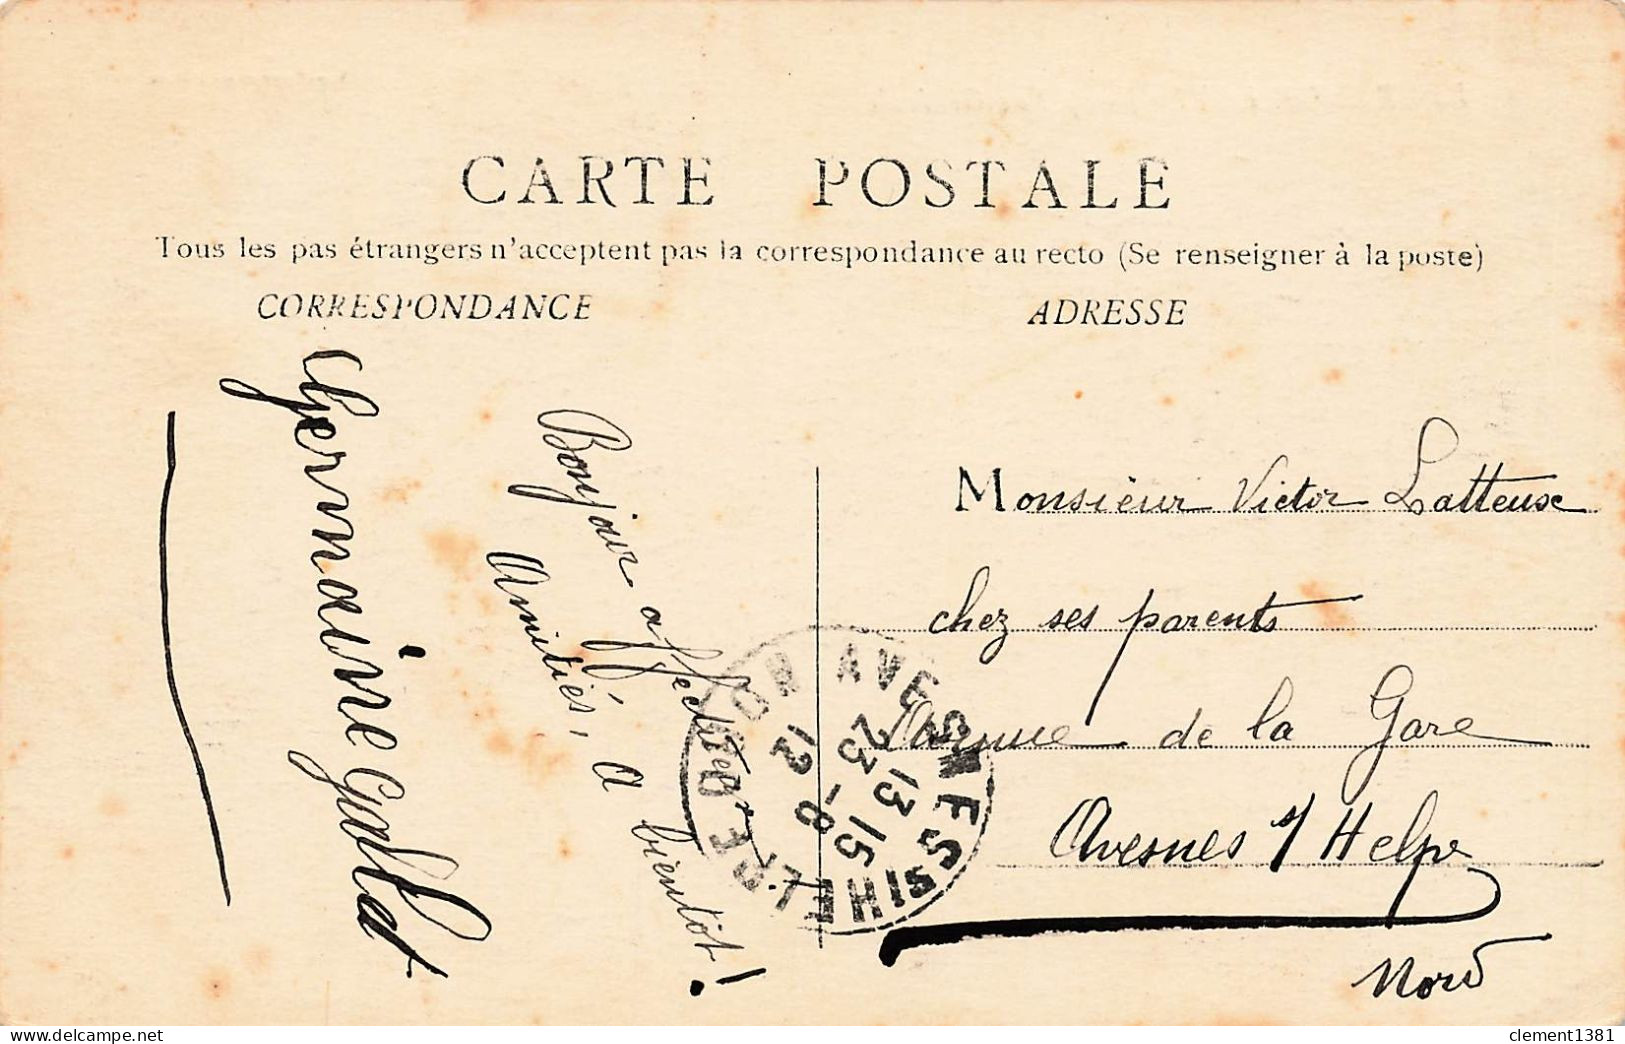 CARTE POSTALE
Tous les pas étrangers n'acceptent pas la correspondance au recto (Se renseigner à la poste)
CORRESPONDANCE
ADRESSE
Bonjour affectueux
Amitiés, à bientôt!
Germaine Gallet
Monsieur Victor Latteuse
chez ses parents
Avenue de la Gare
Avesnes s/ Helpe
Nord
AVESNES S/HELPE NORD
12 -8
23 13 15
clement1381